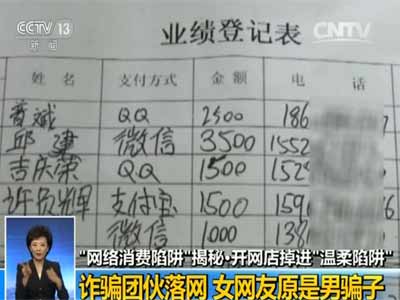 CCTV 13
新闻
CNTV
业绩登记表
姓名 支付方式 金额 电话
QQ 2500 186
邱建 微信 3500 1552
吉庆荣 QQ 1500 152
支付宝 1500
微信 1000
"网络消费陷阱"揭秘·开网店掉进"温柔陷阱"
诈骗团伙落网 女网友原是男骗子